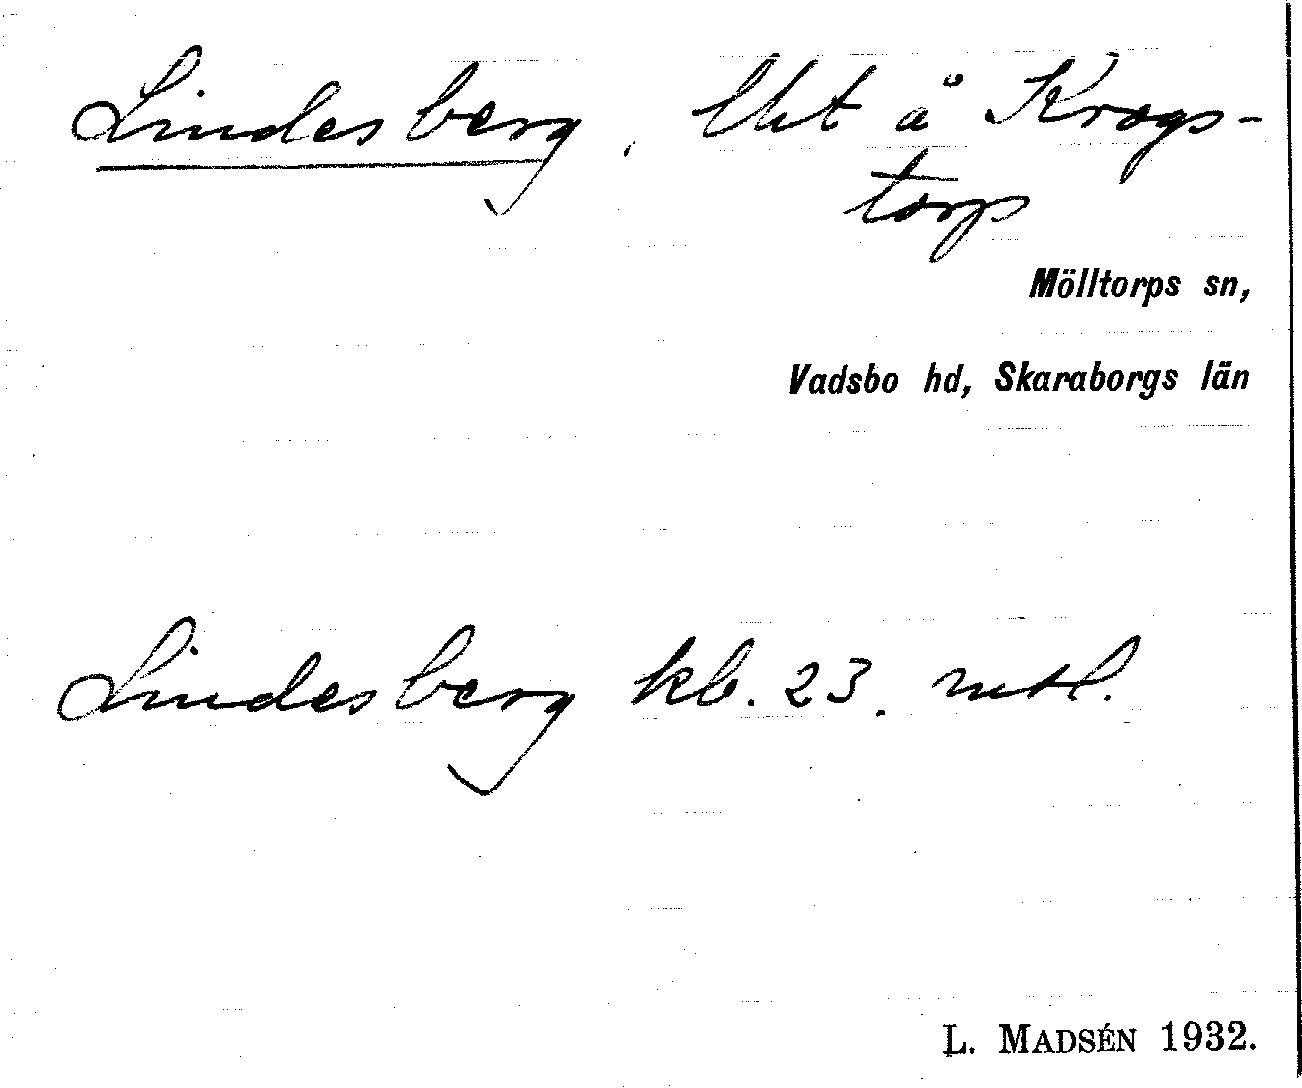 Lindesberg, Uht å Krogs-
torp
Mölltorps sn,
Vadsbo hd, Skaraborgs län
Lindesberg kb. 23. mtl.
L. MADSÉN 1932.